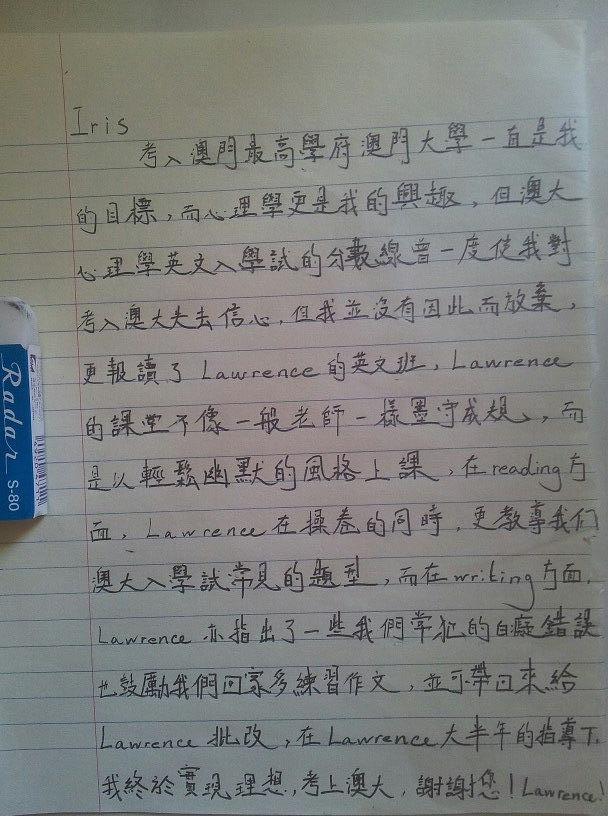 Iris
考入澳門最高學府澳門大學一直是我
的目標，而心理學更是我的興趣，但澳大
心理學英文入學試的分數線曾一度使我對
考入澳大失去信心，但我並沒有因此而放棄，
更報讀了Lawrence的英文班，Lawrence
的課堂不像一般老師一樣墨守成規，而
是以輕鬆幽默的風格上課，在reading方
面，Lawrence在操卷的同時，更教導我们
澳大入學試常見的題型，而在writing方面，
Lawrence亦指出了一些我們常犯的白癡錯誤
也鼓勵我們回家多練習作文，並可帶回來給
Lawrence批改，在Lawrence大半年的指導下，
我終於實現理想，考上澳大，謝謝您！Lawrence！
Radar S-80